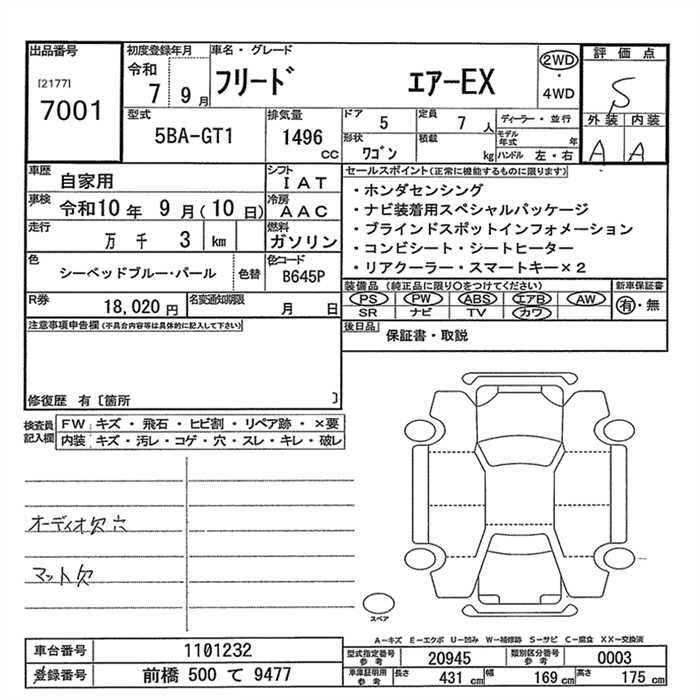 出品番号
[2177]
7001
初度登録年月
令和
7 9月
車名・グレード
フリード エアーEX
2WD
・
4WD
評価点
S
外装 内装
A A
型式
5BA-GT1
排気量
1496
cc
ドア
5
定員
7 人
ディーラー・並行
形状
ワゴン
積載
kg
モデル年式 年
ハンドル 左・右
車歴
自家用
シフト
IAT
車検
令和10年 9月(10日)
冷房
AAC
走行
万 千 3 km
燃料
ガソリン
色
シーベッドブルー・パール
色替
色コード
B645P
R券
18,020円
名変通知期限
月 日
セールスポイント(正常に機能するものに限ります)
・ホンダセンシング
・ナビ装着用スペシャルパッケージ
・ブラインドスポットインフォメーション
・コンビシート・シートヒーター
・リアクーラー・スマートキー×2
装備品 (純正品に限り○をつけてください)
PS PW ABS エアB AW
SR ナビ TV カワ
新車保証書
有・無
後日品
保証書・取説
注意事項申告欄(不具合内容等は具体的に記入して下さい)
修復歴 有 [箇所 ]
検査員
記入欄
FW キズ・飛石・ヒビ割・リペア跡・×要
内装 キズ・汚レ・コゲ・穴・スレ・キレ・破レ
オーディオ欠 穴
マット欠
スペア
A-キズ E-エクボ U-凹み W-補修跡 S-サビ C-腐食 XX-交換済
車台番号
1101232
登録番号
前橋 500 て 9477
型式指定番号
参考
20945
類別区分番号
参考
0003
車庫証明用
参考
長さ 431cm
幅 169cm
高さ 175cm